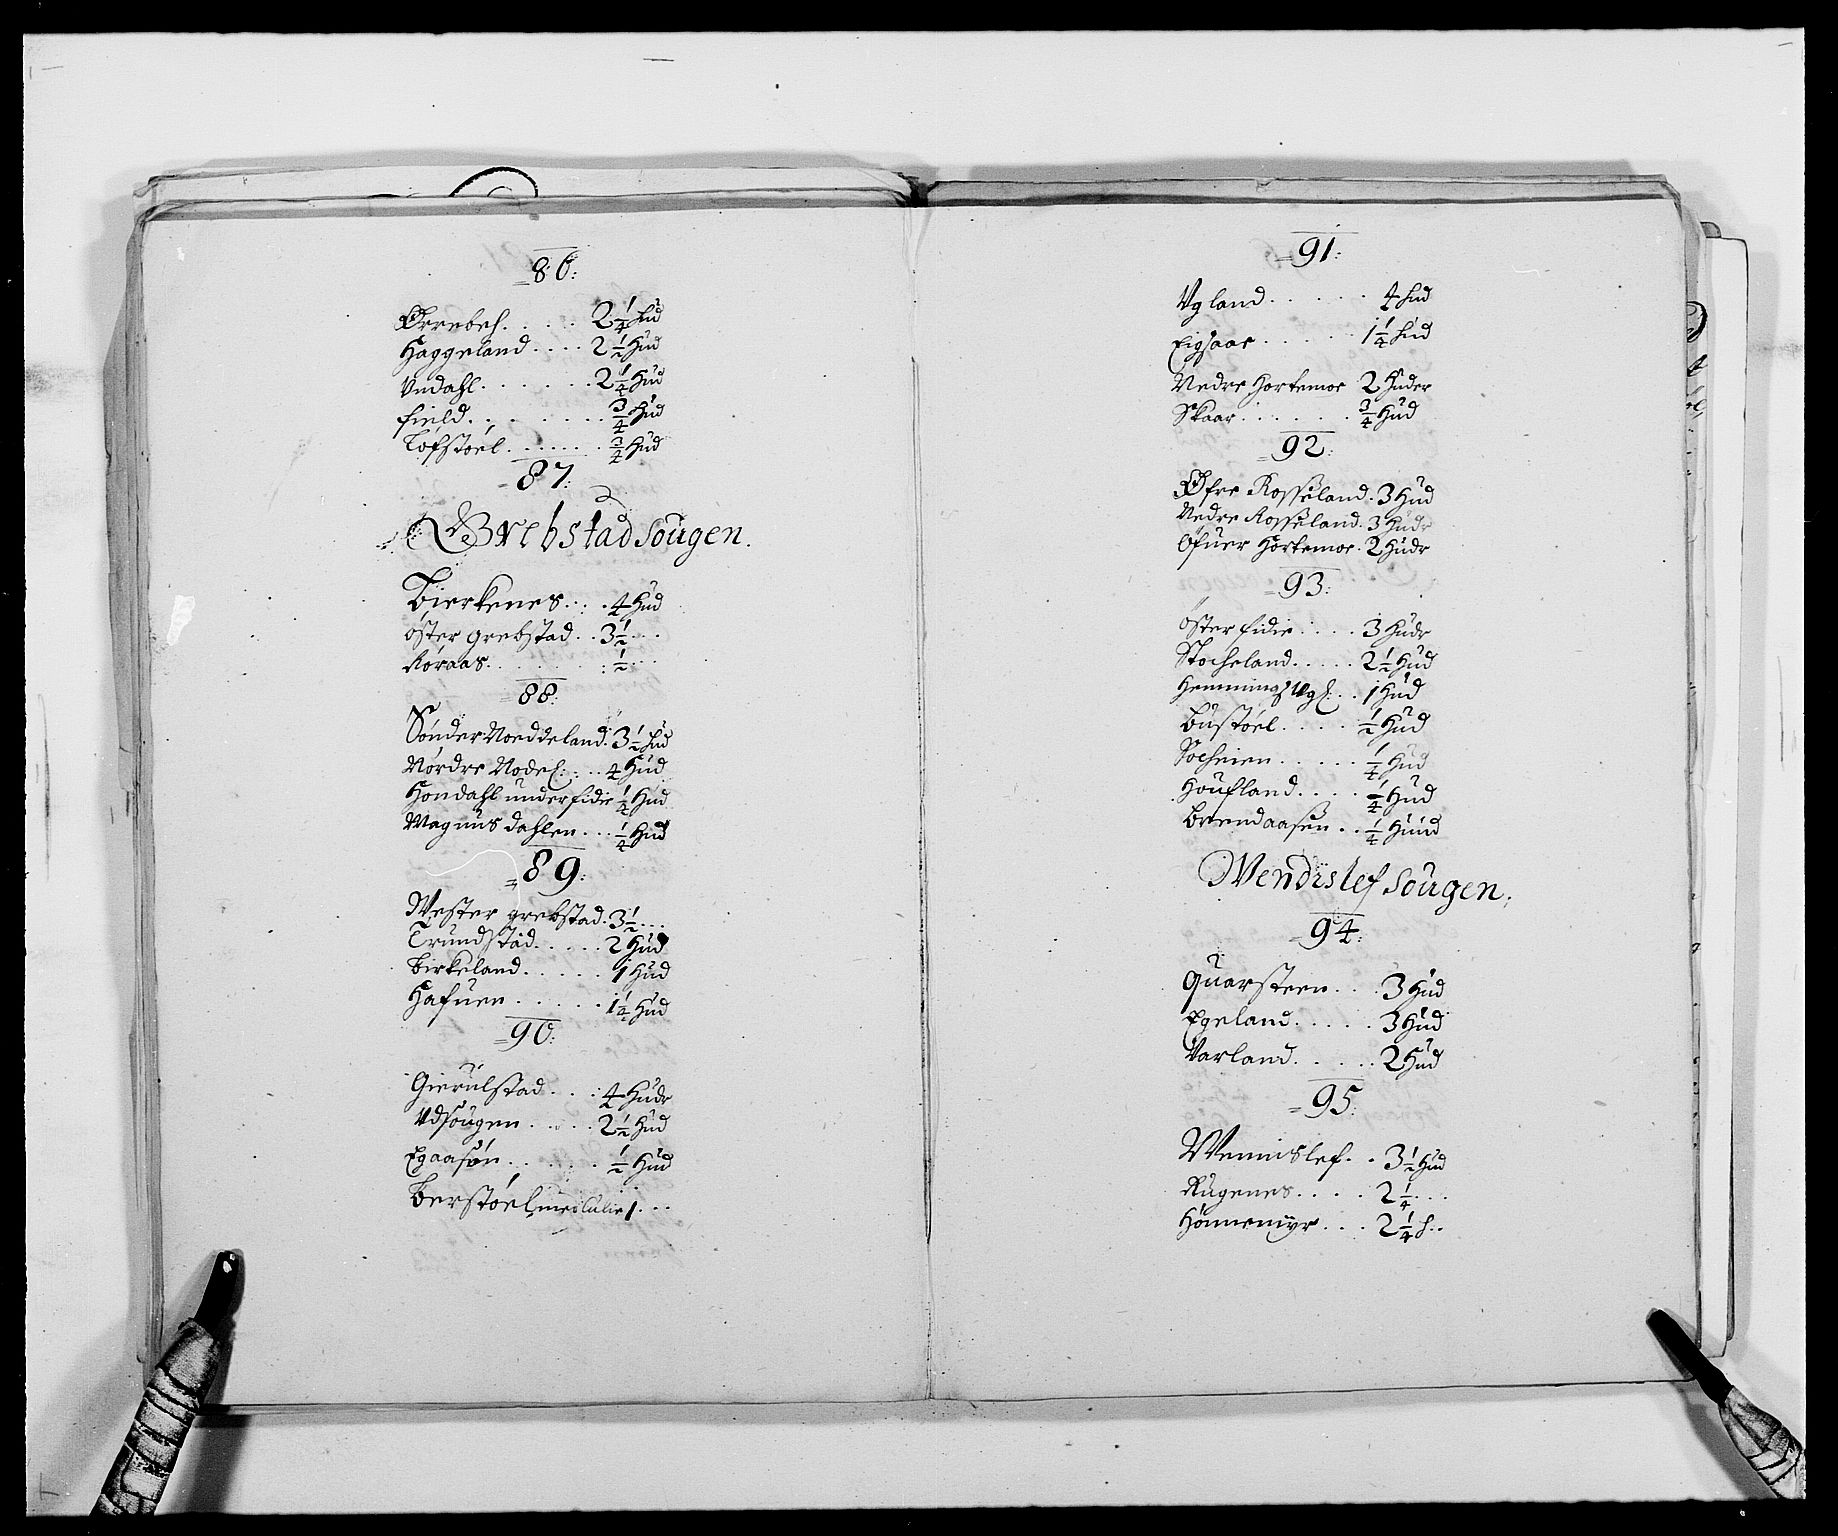 86:
Ørrebek . . . . . 2 1/4 hud
Haggeland . . . . 2 1/2 Hud
Undahl . . . . . . . 2 1/4 Hud
field . . . . . . . . 3/4 Hud
Løfstøel . . . . . . . 3/4 Hud
87:
Grebstad sougen.
Bierkenes . . : . 4 Hud
öster grebstad . . 3 1/2 . . .
Röraas . . . . . . . : 1/2 . . .
88:
Sønder Noeddeland . 3 1/2 hud
Nördre Nodel: . . . 4 Hud
Hondahl under fidie 1/4 Hud
Magnus dahlen . . . 1/4 Hud
89:
Wester grebstad . 3 1/2 . . .
Trundstad . . . . . 2 Hud
Birkeland . . . . . 1 Hud
Hafuen . . . . . . 1 1/4 Hud
90:
Gierulstad . . . : 4 Hudr
Udsougen . . . . . 2 1/2 Hud
Egaasön . . . . . . 1/2 Hud
Berstöel med 1 . . .
91:
Vgland . . . . . . 4 hud
Eigsaae . . . . . . 1 1/4 hud
Nedre Hortemoe 2 Huder
Skaar . . . . . . . 3/4 Hud
92:
Øfre Rosseland . 3 Hud
Nedre Rosseland . 3 Hudr
Ofuer Hortemoe . 2 Hudr
93:
öster fidie . . . . 3 Hudr
Stocheland . . . . . 2 1/2 Hud
Hemmings . . 1 Hud
Bustöel . . . . . 1/2 Hud
Socheien . . . . . 1/4 Hud
Houfland . . . . 1/4 Hud
Brendaasen . . 1/4 Huud
Wendislef sougen.
94:
Quarsteen . . . 3 Hud
Egeland . . . . . 3 Hud
Varland . . . . . 2 Hud
95:
Wennislef . . 3 1/2 Hud
Rugenes . . . . 2 1/4 . . .
Hönnemyr . . . 2 1/4 h . .